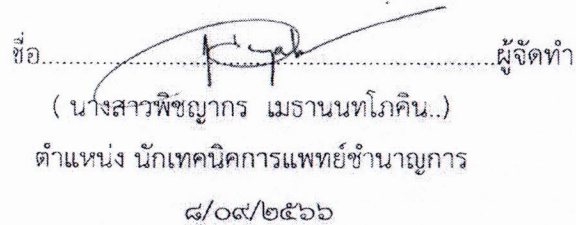 ชื่อ....................................................................ผู้จัดทำ
( นางสาวพิชญากร เมธานนทโภคิน..)
ตำแหน่ง นักเทคนิคการแพทย์ชำนาญการ
๘/๐๙/๒๕๖๖